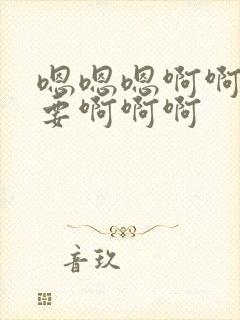 嗯嗯嗯啊啊
要啊啊啊
音玖